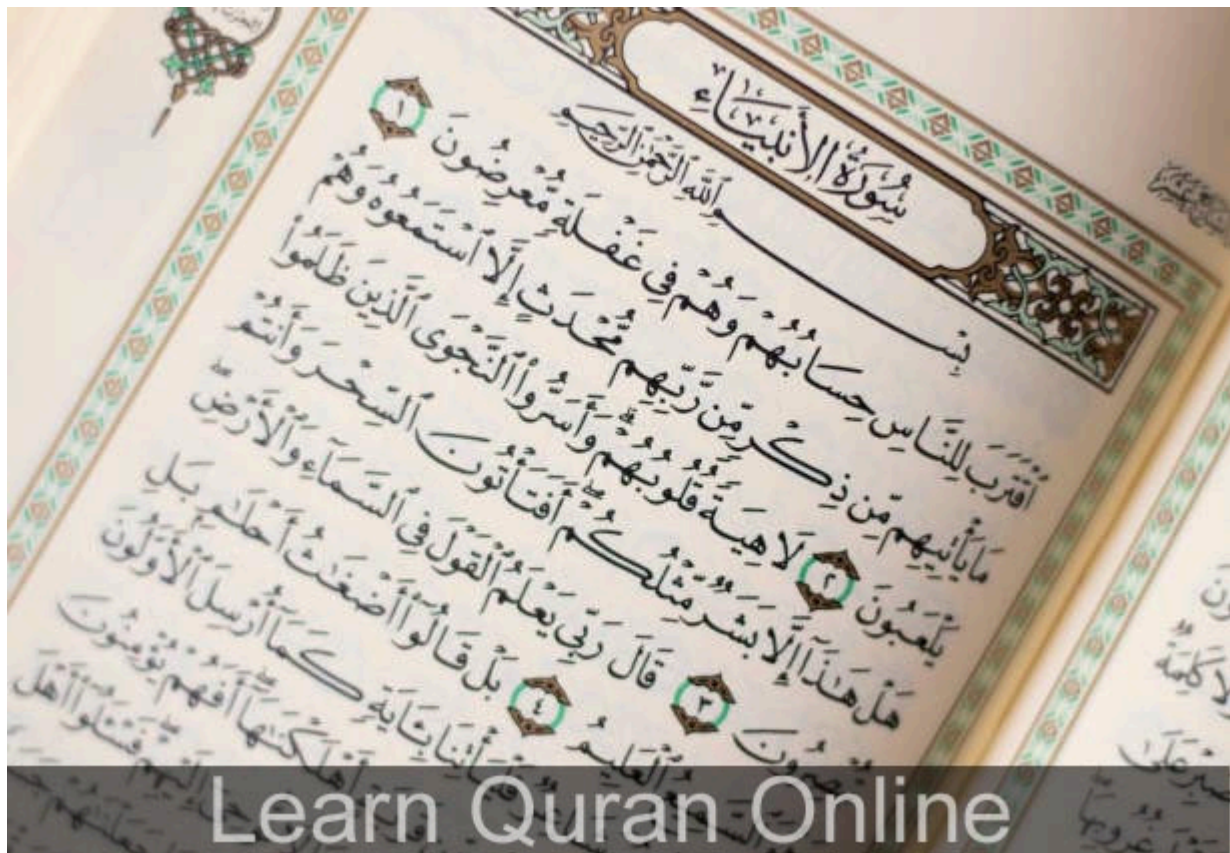 سُورَةُ الْأَنبِيَاءِ
بِسْمِ اللَّهِ الرَّحْمَٰنِ الرَّحِيمِ
ٱقْتَرَبَ لِلنَّاسِ حِسَابُهُمْ وَهُمْ فِى غَفْلَةٍ مُّعْرِضُونَ ١
مَا يَأْتِيهِم مِّن ذِكْرٍ مِّن رَّبِّهِم مُّحْدَثٍ إِلَّا ٱسْتَمَعُوهُ وَهُمْ
يَلْعَبُونَ ٢ لَاهِيَةً قُلُوبُهُمْ ۗ وَأَسَرُّوا۟ ٱلنَّجْوَى ٱلَّذِينَ ظَلَمُوا۟
هَلْ هَٰذَآ إِلَّا بَشَرٌ مِّثْلُكُمْ ۖ أَفَتَأْتُونَ ٱلسِّحْرَ وَأَنتُمْ
تُبْصِرُونَ ٣ قَالَ رَبِّى يَعْلَمُ ٱلْقَوْلَ فِى ٱلسَّمَآءِ وَٱلْأَرْضِ ۖ
ٱلْعَلِيمُ ٤ بَلْ قَالُوٓا۟ أَضْغَٰثُ أَحْلَٰمٍۭ بَلِ
فَلْيَأْتِنَا بِـَٔايَةٍ كَمَآ أُرْسِلَ ٱلْأَوَّلُونَ
أَهْلَكْنَٰهَآ ۖ أَفَهُمْ يُؤْمِنُونَ
إِلَيْهِمْ ۖ فَسْـَٔلُوٓا۟ أَهْلَ
Learn Quran Online